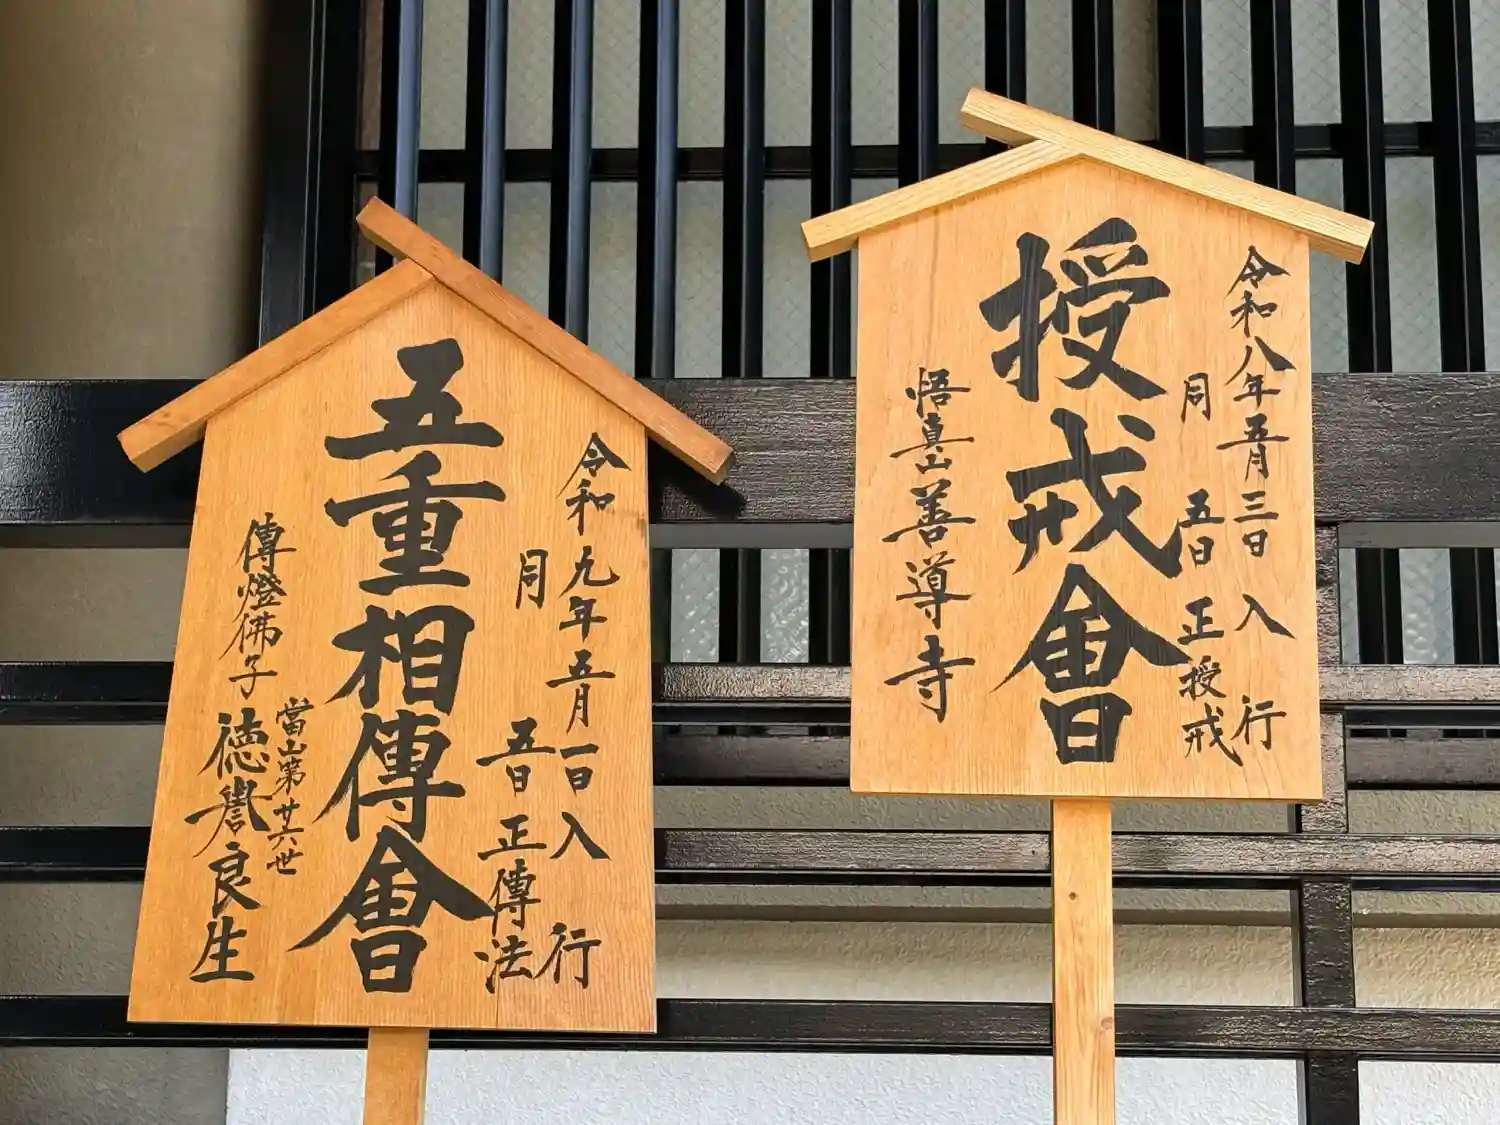 授戒會
令和八年五月三日入行
同五日正授戒
悟真山善導寺
五重相傳會
令和九年五月一日入行
同五日正傳法
傳燈佛子
當山第廿六世
徳譽良生